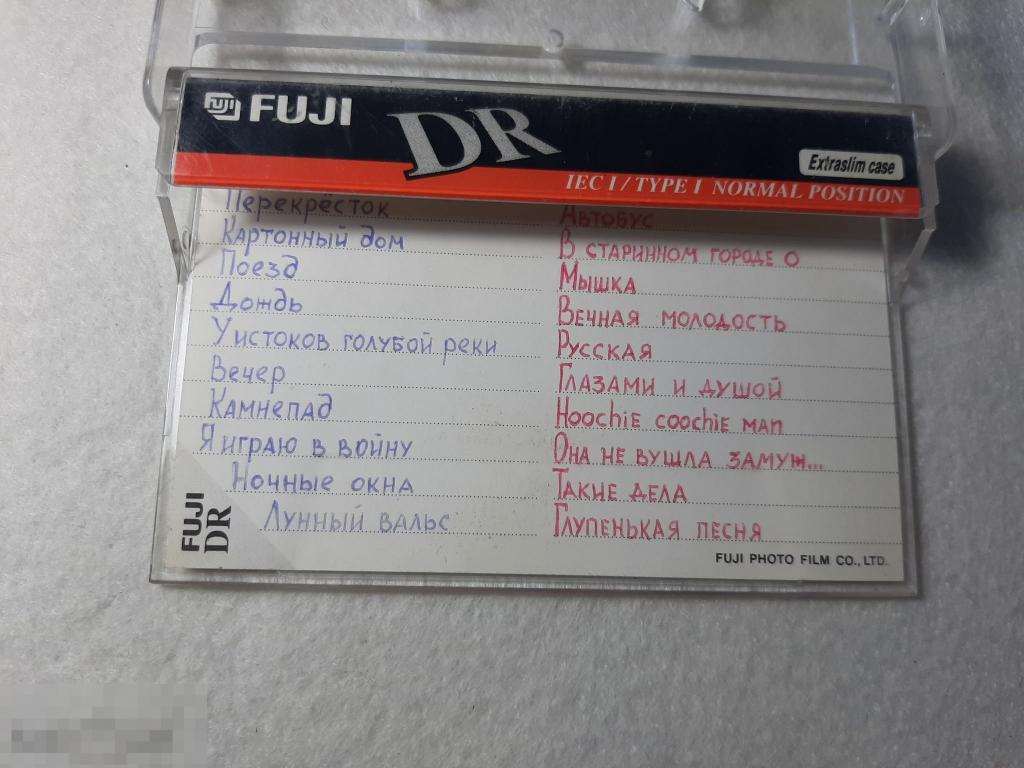 FUJI
FUJI
DR
Extraslim case
IEC I / TYPE I NORMAL POSITION
Перекрёсток
Картонный дом
Поезд
Дождь
У истоков голубой реки
Вечер
Камнепад
Я играю в войну
Ночные окна
Лунный вальс
Автобус
В старинном городе О
Мышка
Вечная молодость
Русская
Глазами и душой
Hoochie coochie man
Она не вушла замуж...
Такие дела
Глупенькая песня
FUJI
DR
FUJI PHOTO FILM CO., LTD.